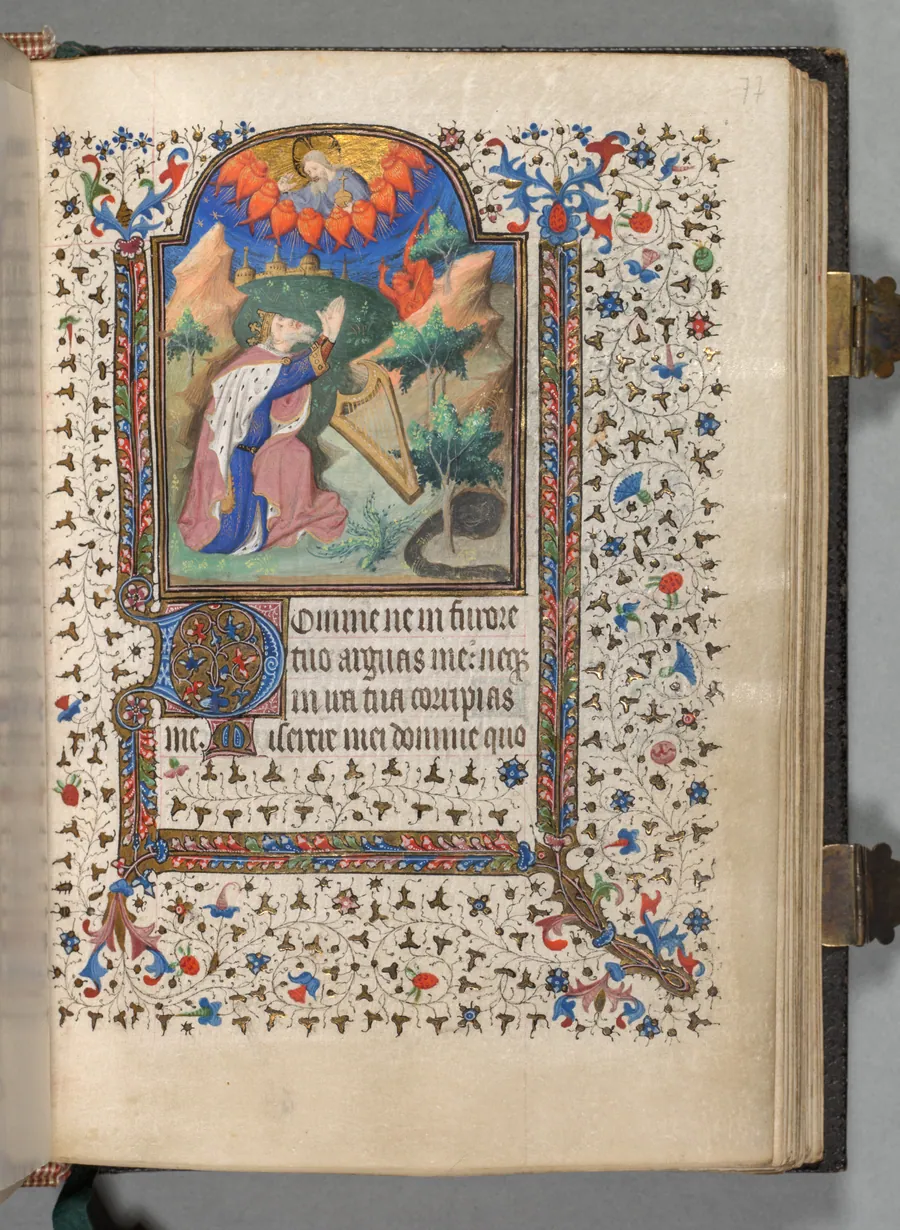 77
Domine ne in furore
tuo arguas me: neqꝫ
in ira tua corripias
me. Miserere mei domine quo